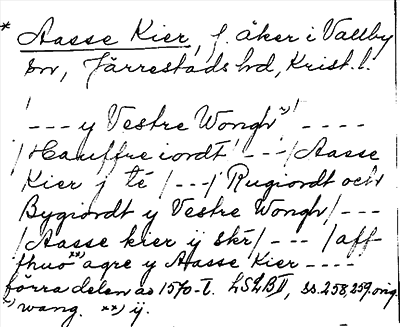 * Aasse Kier, f. åker i Vallby
sn, Järrestads hd, Krist. l.
/--- y Vestre Wongh *)/ ----
/Hauffre iordt/ ---/Aasse
Kier j té /---/ Rugiordt och
Bygiordt y Vestre Wongh/---
/Aasse kier ij skr/--- /aff-
thuo **) agre y Aasse Kier ----
förra delen av 1570-t. LSLB II, ss. 258, 259 orig.
*) wang. **) ij.